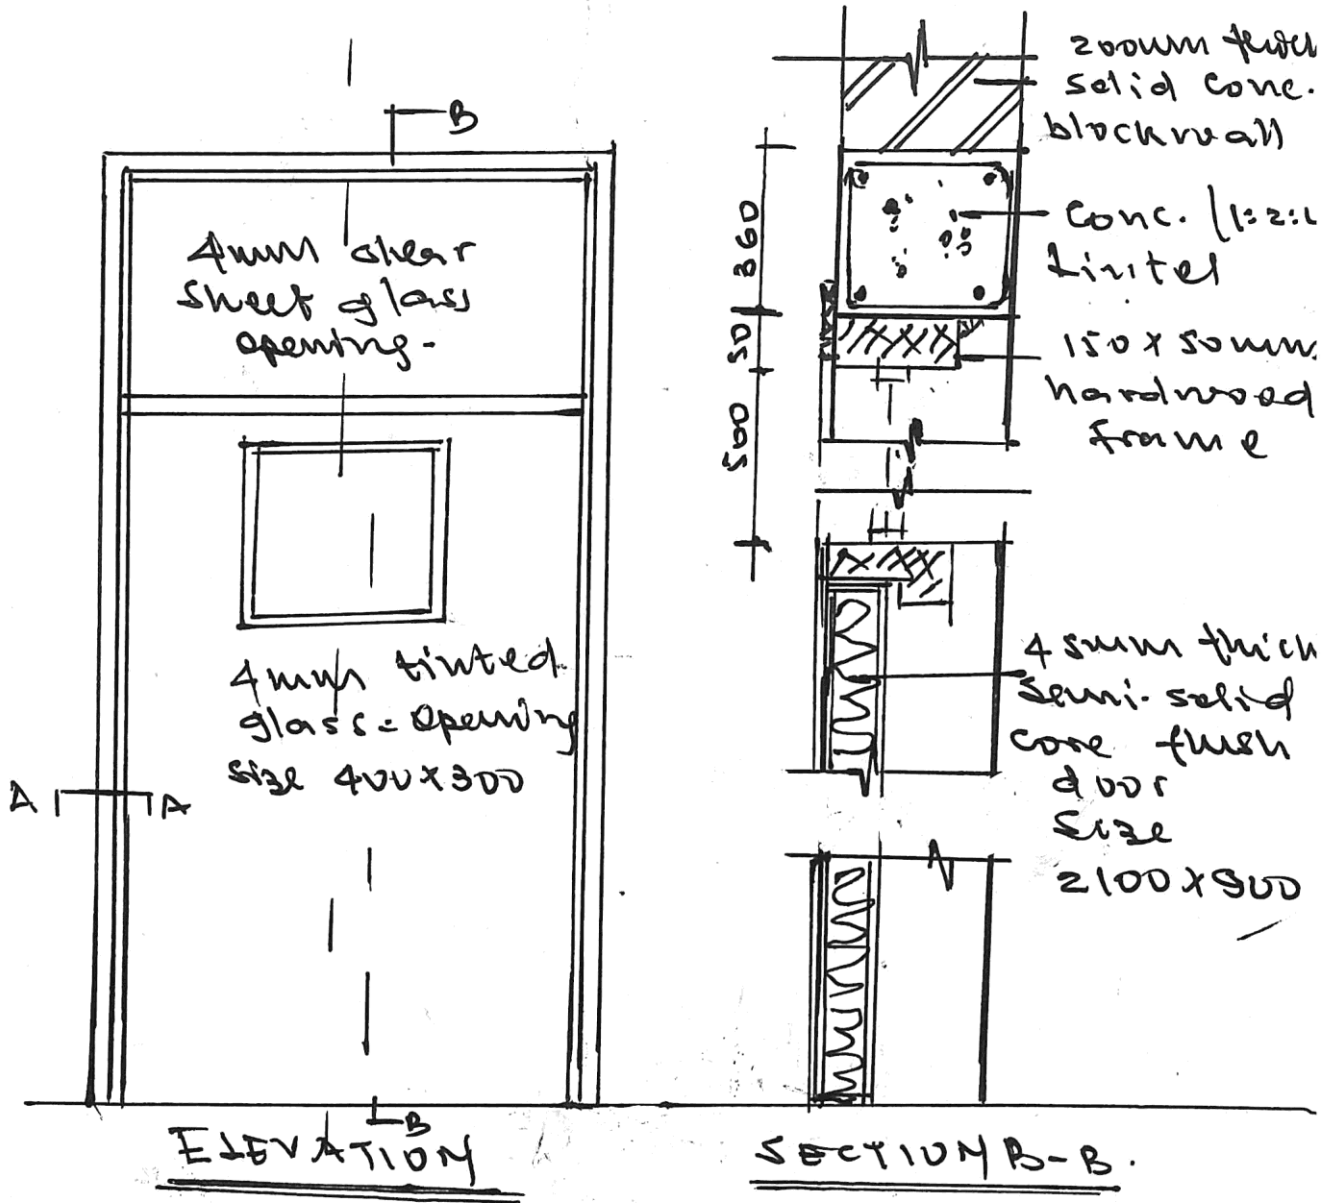 B
4mm clear
sheet glass
opening-
4mm tinted
glass - opening
size 400x300
A
A
B
ELEVATION
200mm thick
solid conc.
blockwall
conc. (1:2:
Lintel
150x50mm
hardwood
frame
360
50
500
45mm thick
semi-solid
core flush
door
size
2100x900
SECTION B-B.